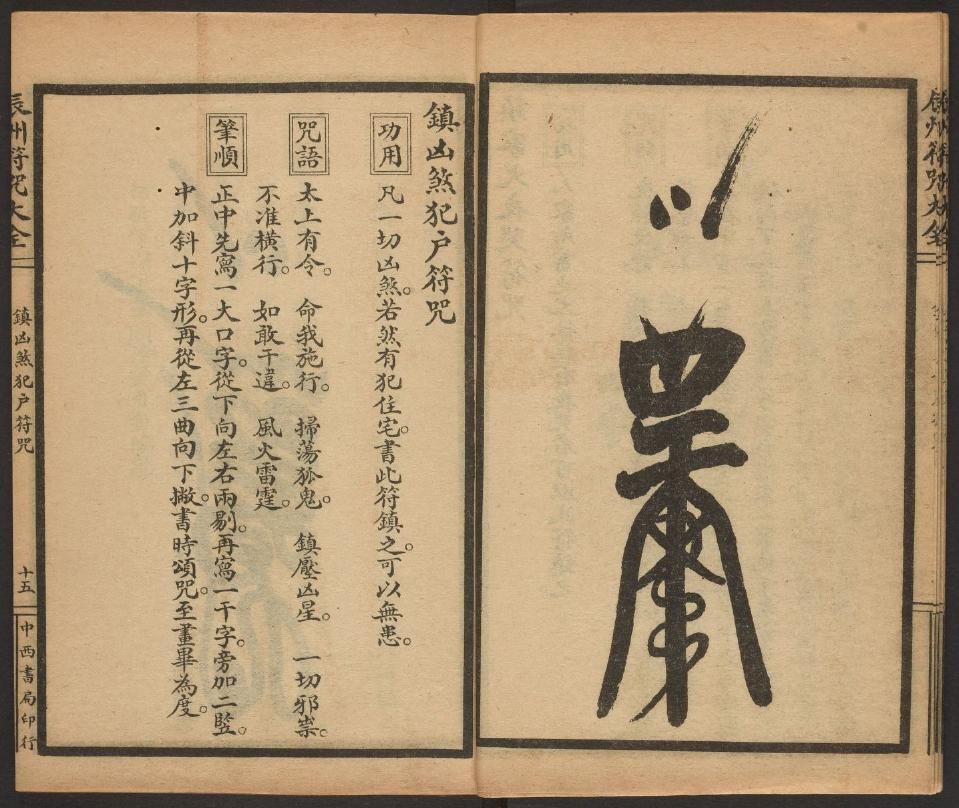 辰州符咒大全
鎮凶煞犯戶符咒
功用
凡一切凶煞。若然有犯住宅。書此符鎮之。可以無患。
咒語
太上有令。 命我施行。 掃蕩狐鬼。 鎮壓凶星。 一切邪祟。
不准橫行。 如敢干違。 風火雷霆。
筆順
正中先寫一大口字。從下向左右兩剔。再寫一干字。旁加二豎。
中加斜十字形。再從左三曲向下撇。書時頌咒。至畫畢為度。
辰州符咒大全
鎮凶煞犯戶符咒
十五
中西書局印行